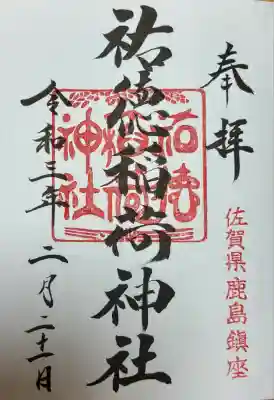 奉拝
佐賀県鹿島鎮座
祐徳稲荷神社
令和三年 二月二十一日